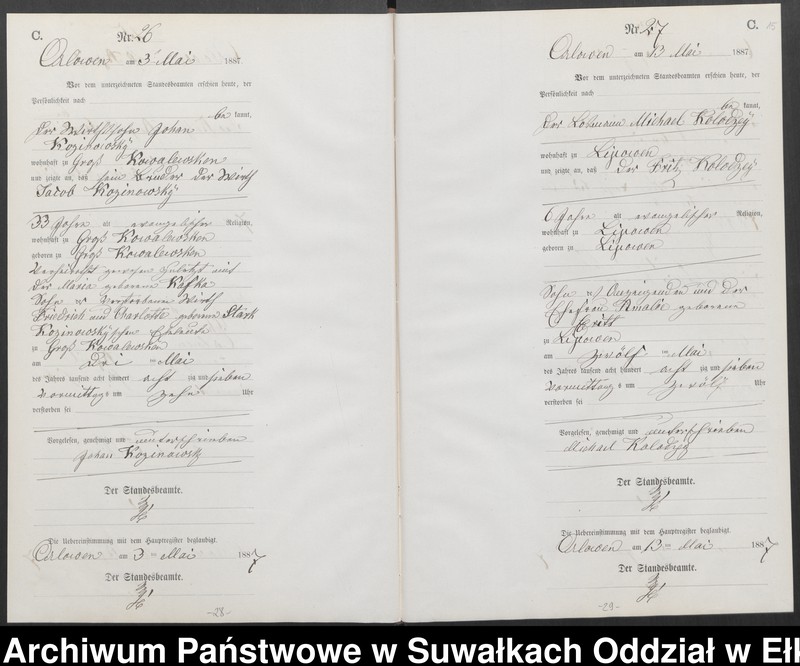 C.
Nr. 26
Orlowen am 3 Mai 1887.
Vor dem unterzeichneten Standesbeamten erschien heute, der
Persönlichkeit nach
be kannt,
der Wirthssohn Johan
Kozinowsky
wohnhaft zu Groß Kowalewsken
und zeigte an, daß sein Bruder der Wirth
Jacob Kozinowsky
33 Jahre alt evangelischer Religion,
wohnhaft zu Groß Kowalewsken
geboren zu Groß Kowalewsken
verheirathet gewesen zuletzt mit
der Marie geborene Kafka
Sohn der verstorbenen Wirth
Friedrich und Charlotte geborene Stark
Kozinowskyschen Eheleute
zu Groß Kowalewsken
am Drei ten Mai
des Jahres tausend acht hundert acht zig und sieben
Vormittags um zehn Uhr
verstorben sei
Vorgelesen, genehmigt und unterschrieben
Johan Kozinowsky
Der Standesbeamte.
Die Uebereinstimmung mit dem Hauptregister beglaubigt.
Orlowen am 3 ten Mai 1887
Der Standesbeamte.
-28-
C.
15
Nr. 27
Orlowen am 13 Mai 1887
Vor dem unterzeichneten Standesbeamten erschien heute, der
Persönlichkeit nach
be kannt,
der Losmann Michael Kolodzey
wohnhaft zu Lipowen
und zeigte an, daß der Fritz Kolodzey
6 Jahre alt evangelischer Religion,
wohnhaft zu Lipowen
geboren zu Lipowen
Sohn des Anzeigenden und der
Ehefrau Amalie geborene
zu Lipowen
am zwölf ten Mai
des Jahres tausend acht hundert acht zig und sieben
Vormittags um zwölf Uhr
verstorben sei
Vorgelesen, genehmigt und unterschrieben
Michael Kolodzey
Der Standesbeamte.
Die Uebereinstimmung mit dem Hauptregister beglaubigt.
Orlowen am 13 ten Mai 1887
Der Standesbeamte.
-29-
Archiwum Państwowe w Suwałkach Oddział w Eł